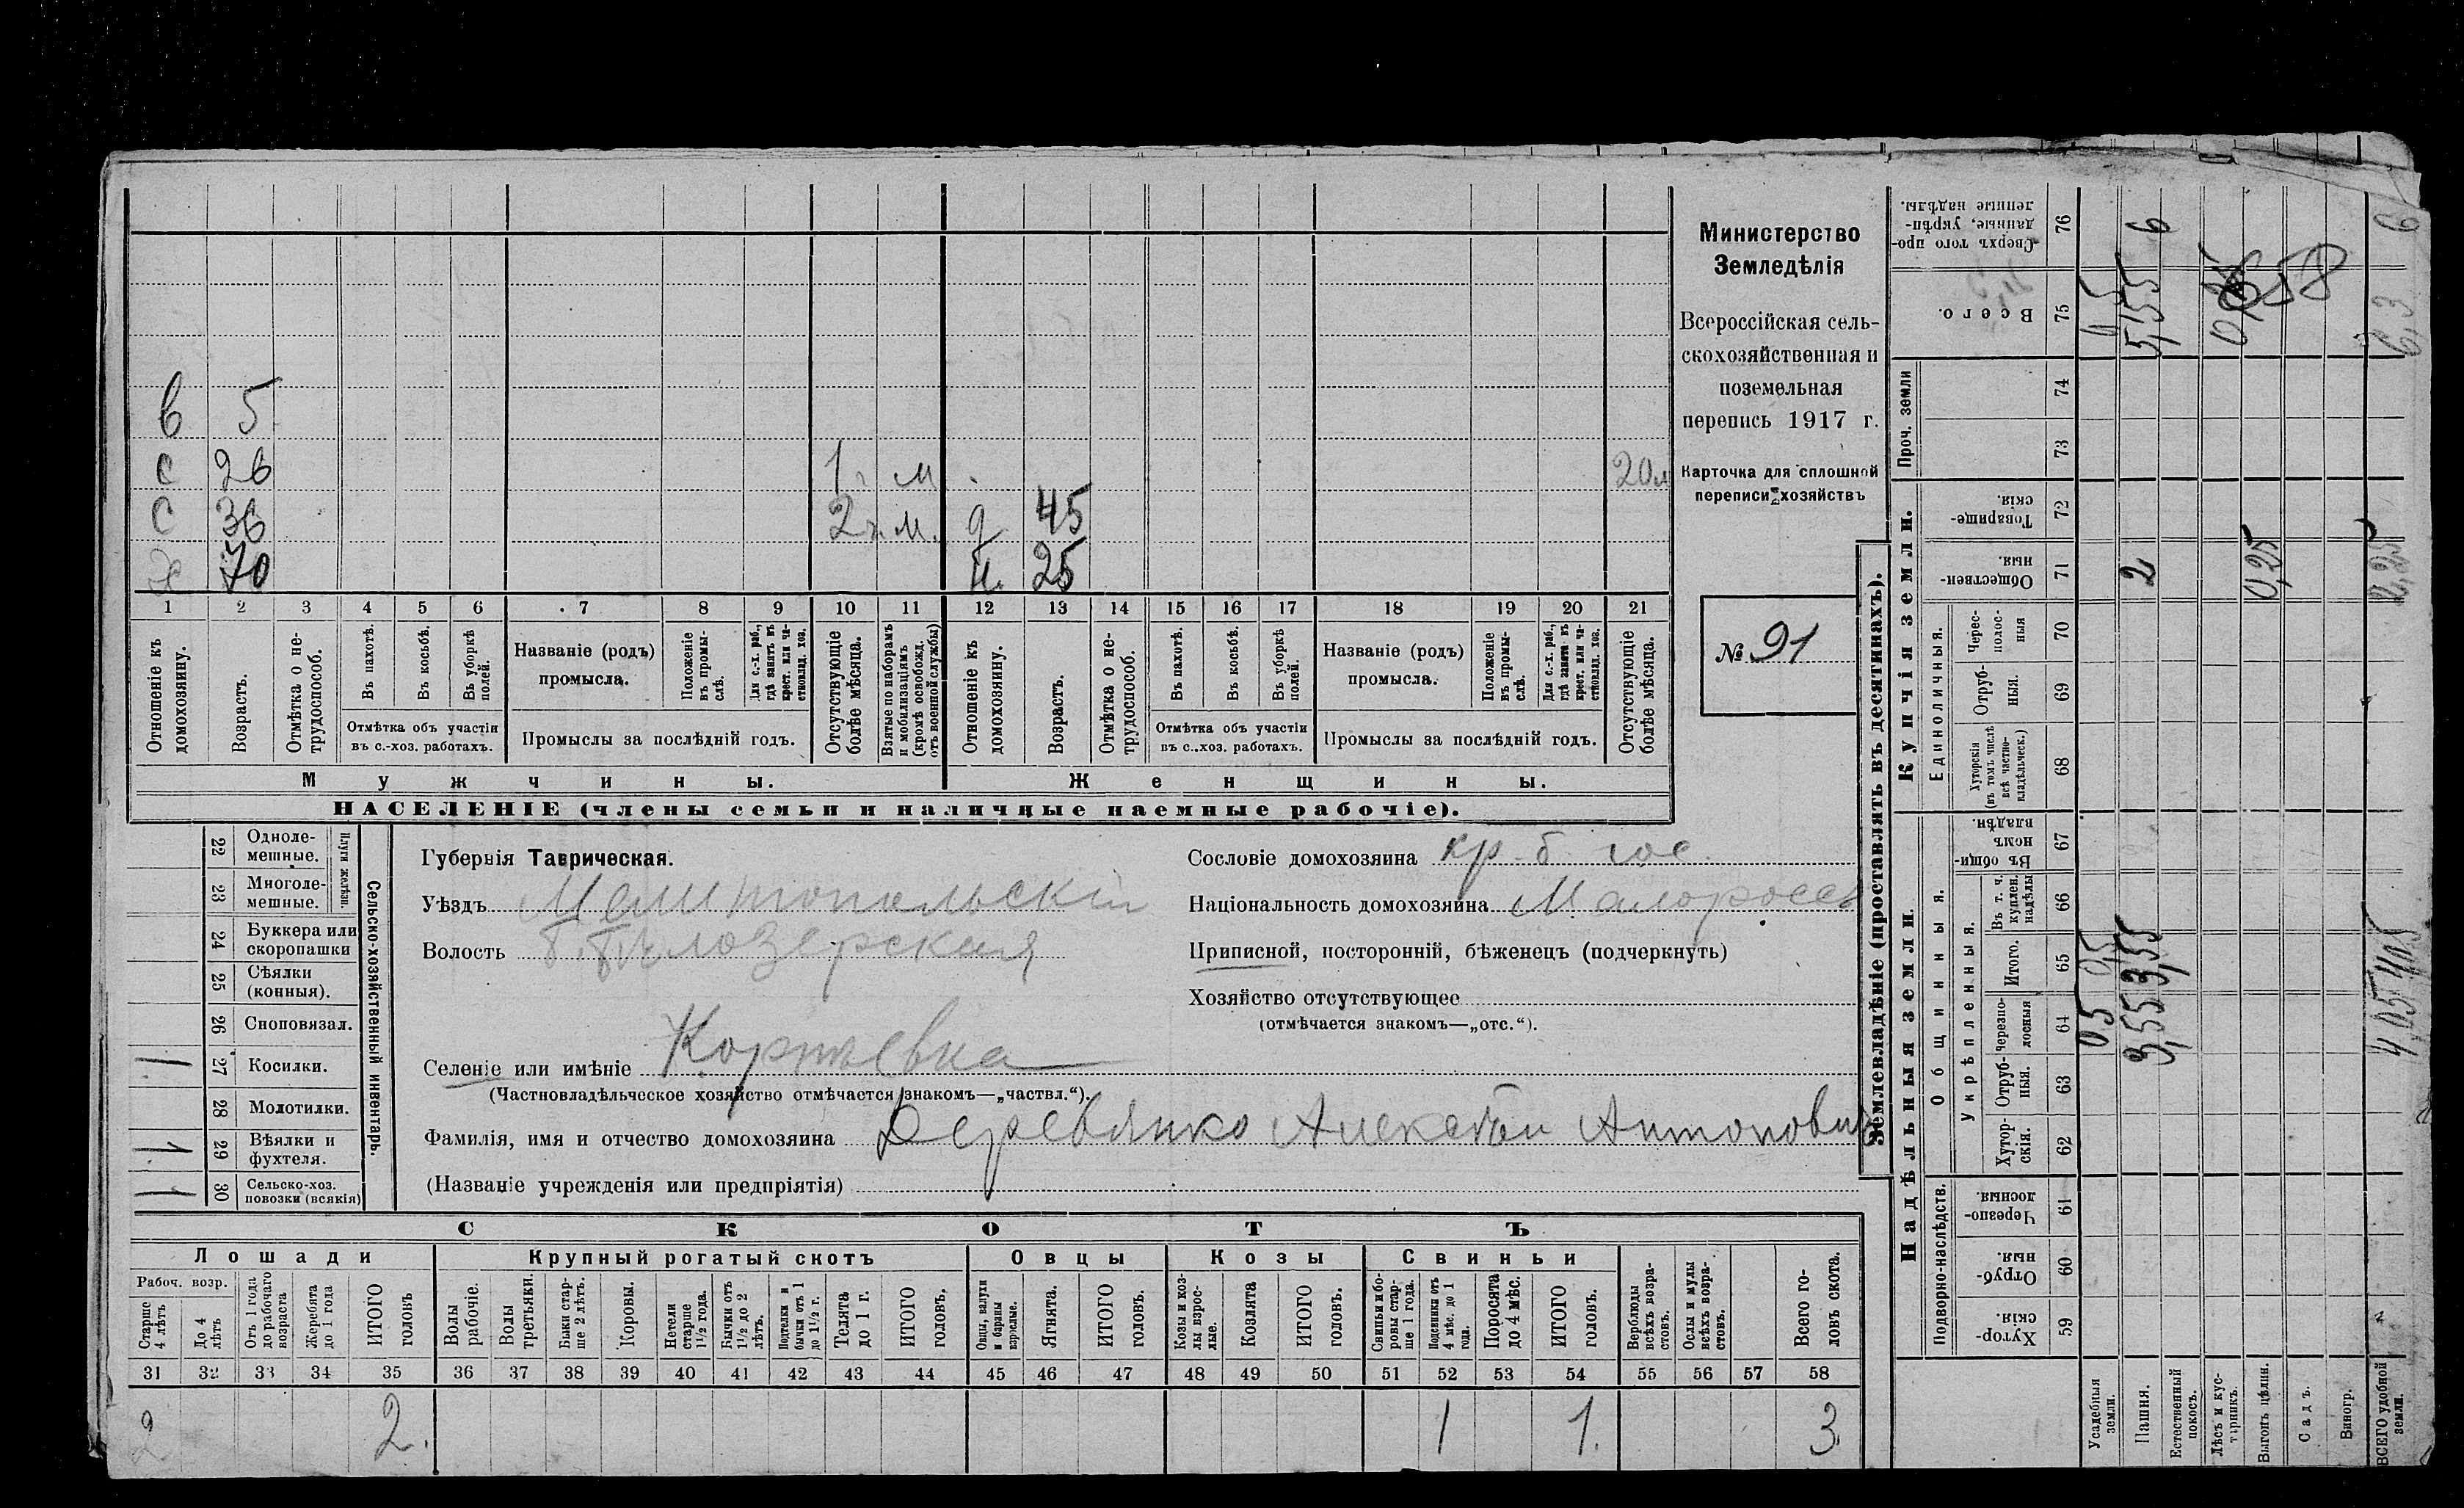 Министерство
Земледѣлія
Всероссійская сель-
скохозяйственная и
поземельная
перепись 1917 г.
Карточка для сплошной
переписи хозяйствъ
№ 91
в 5
с 26 1 г. м 20 л
с 36 2 г. м. д 45
х 70 н. 25
1 2 3 4 5 6 7 8 9 10 11 12 13 14 15 16 17 18 19 20 21
Отношеніе къ домохозяину.
Возрастъ.
Отмѣтка о не-трудоспособ.
Въ пахотѣ.
Въ косьбѣ.
Въ уборкѣ полей.
Отмѣтка объ участіи
въ с.-хоз. работахъ.
Названіе (родъ)
промысла.
Положеніе въ промы-слѣ.
Для с.-х. раб., гдѣ занятъ въ крест. или ча-стновлад. хоз.
Промыслы за послѣдній годъ.
Отсутствующіе болѣе мѣсяца.
Взятые по наборамъ и мобилизаціямъ (кромѣ освобожд. отъ военной службы)
Отношеніе къ домохозяину.
Возрастъ.
Отмѣтка о не-трудоспособ.
Въ пахотѣ.
Въ косьбѣ.
Въ уборкѣ полей.
Отмѣтка объ участіи
въ с.-хоз. работахъ.
Названіе (родъ)
промысла.
Положеніе въ промы-слѣ.
Для с.-х. раб., гдѣ занята въ крест. или ча-стновлад. хоз.
Промыслы за послѣдній годъ.
Отсутствующіе болѣе мѣсяца.
Мужчины. Женщины.
НАСЕЛЕНІЕ (члены семьи и наличные наемные рабочіе).
Сельско-хозяйственный инвентарь.
Плуги желѣзн.
22 Одноле-мешные.
23 Многоле-мешные.
24 Буккера или скоропашки
25 Сѣялки (конныя).
26 Сноповязал.
1 27 Косилки.
28 Молотилки.
1 29 Вѣялки и фухтеля.
1 30 Сельско-хоз. повозки (всякія)
Губернія Таврическая.
Уѣздъ Мелитопольскій
Волость Б. Бѣлозерская
Селеніе или имѣніе
(Частновладѣльческое хозяйство отмѣчается знакомъ—„частвл.“).
Фамилія, имя и отчество домохозяина Деревянко Алексѣй Антонович
(Названіе учрежденія или предпріятія)
Сословіе домохозяина кр. б. гос.
Національность домохозяина Малоросс
Приписной, посторонній, бѣженецъ (подчеркнуть)
Хозяйство отсутствующее
(отмѣчается знакомъ—„отс.“).
СКОТЪ
Лошади Крупный рогатый скотъ Овцы Козы Свиньи
Рабоч. возр.
Старше 4 лѣтъ
До 4 лѣтъ
Отъ 1 года до рабочаго возраста
Жеребята до 1 года
ИТОГО головъ
Волы рабочіе.
Волы третьяки.
Быки стар-ше 2 лѣтъ.
Коровы.
Нетели старше 1 1/2 года.
Бычки отъ 1 1/2 до 2 лѣтъ.
Подтелки и бычки отъ 1 до 1 1/2 г.
Телята до 1 г.
ИТОГО головъ.
Овцы, валухи и бараны взрослые.
Ягнята.
ИТОГО головъ.
Козы и коз-лы взрос-лые.
Козлята
ИТОГО головъ.
Свиньи и бо-ровы стар-ше 1 года.
Подсвинки отъ 4 мѣс. до 1 года.
Поросята до 4 мѣс.
ИТОГО головъ.
Верблюды всѣхъ возра-стовъ.
Ослы и мулы всѣхъ возра-стовъ.
Всего го-ловъ скота.
31 32 33 34 35 36 37 38 39 40 41 42 43 44 45 46 47 48 49 50 51 52 53 54 55 56 57 58
2 2. 1 1. 3
Землевладѣніе (проставлять въ десятинахъ).
Надѣльныя земли.
Подворно-наслѣдств.
Хутор-скія. 59
Отруб-ныя. 60
Черезпо-лосныя. 61
Общинныя.
Укрѣпленныя.
Хутор-скія. 62
Отруб-ныя. 63
Черезпо-лосныя 64
Итого. 65
Въ т. ч. куплен. надѣлы 66
Въ общи-номъ владѣн. 67
Купчія земли.
Единоличныя.
Хуторскія (въ томъ числѣ всѣ частно-владѣльческ.) 68
Отруб-ныя. 69
Черес-полос-ныя 70
Обществен-ныя. 71
Товарище-скія. 72
Проч. земли
73 74
Всего. 75
Сверхъ того про-данные, укрѣп-ленные надѣлы. 76
Усадебныя земли. 0,5 0,5
Пашня. 3,55 3,55 2 5,55 6
Естественный покосъ.
Лѣсъ и кус-тарникъ.
Выгонъ цѣлин. 0,25
Садъ.
Виногр.
ВСЕГО удобной земли. 4,05 4,05 2,25 6,3 6
658